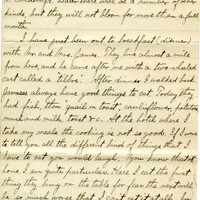 kinds, but they will not bloom for more than a full
month.
I have just been out to breakfast (dinner)
with Mr. and Mrs. James. They live almost a mile
from here and he came after me with a two wheeled
cart called a "ekka". After dinner I walked back
Jameses always have good things to eat. Today they
had fish, then quail on toast, cauliflower, potatoes
musk and milk, toast &c. At the hotel where I
take my meals the cooking is not so good. If I were
to tell you all the different kind of things that I
have to eat you would laugh. You know that at
home I am quite particular. Here I eat the first
thing they bring on the table for fear the next will
be so much worse that I can't eat it at all.